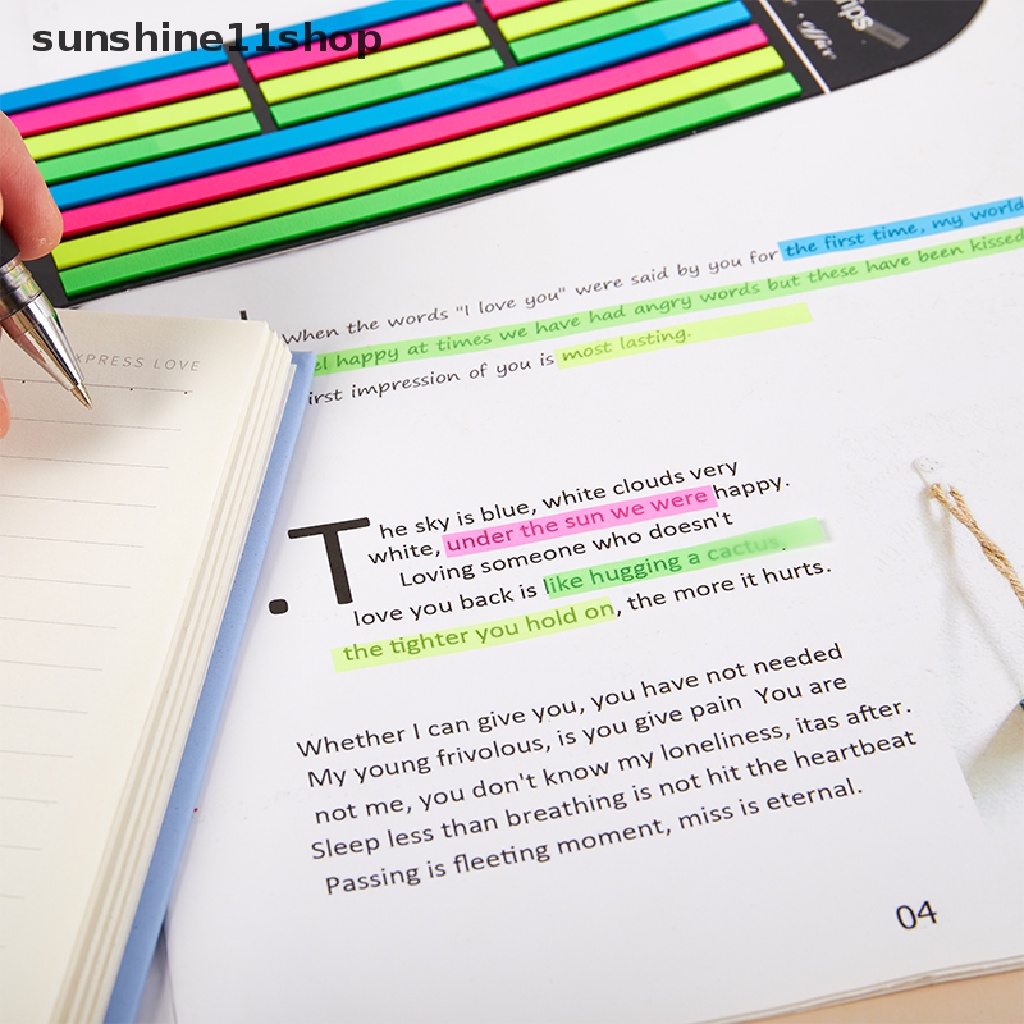 sunshine11shop
When the words "I love you" were said by you for the first time, my world
el happy at times we have had angry words but these have been kissed
irst impression of you is most lasting.
XPRESS LOVE
.The sky is blue, white clouds very
white, under the sun we were happy.
Loving someone who doesn't
love you back is like hugging a cactus,
the tighter you hold on, the more it hurts.
Whether I can give you, you have not needed
My young frivolous, is you give pain You are
not me, you don't know my loneliness, itas after.
Sleep less than breathing is not hit the heartbeat
Passing is fleeting moment, miss is eternal.
04